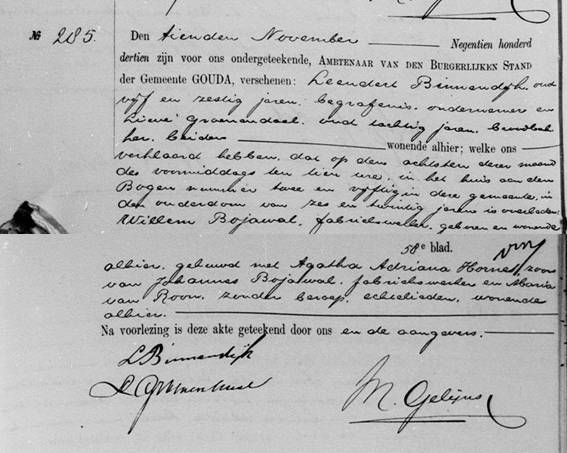 № 285. Den tienden November Negentien honderd
dertien zijn voor ons ondergeteekende, AMBTENAAR VAN DEN BURGERLIJKEN STAND
der Gemeente GOUDA, verschenen: Leendert Binnendijk, oud
vijf en zestig jaren, begrafenis ondernemer en
Groenendaal, oud tachtig jaren,
beiden wonende alhier; welke ons
verklaard hebben, dat op den achtsten dezer maand
des voormiddags ten tien ure, in het huis aan den
Bogen nummer twee en vijftig in deze gemeente, in
den ouderdom van zes en twintig jaren is overleden:
Willem Bojawal, fabriekswerker, geboren en wonende
58e blad.
alhier, gehuwd met Agatha Adriana Hornes, zoon
van Johannes Bojawal, fabriekswerker en Maria
van Roon, zonder beroep, echtelieden, wonende
alhier.
Na voorlezing is deze akte geteekend door ons en de aangevers.
L Binnendijk
M. Gelijns